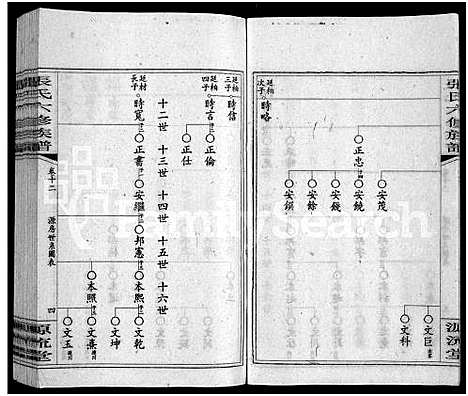 張氏六修族譜
汲流堂
延柚
次子
時略
正忠
安茂
安鏡
安錢
安餘
安鎖
文臣
文科
延柚
三子
時信
延柚
四子
時言
正倫
正仕
十二世 十三世 十四世 十五世 十六世
延材
長子
時寬
正書
安繼
邦憲
本熙
本照
文乾
文坤
文熹
文玉
張氏六修族譜
卷十二
源房世系圖表
四
FamilySearch